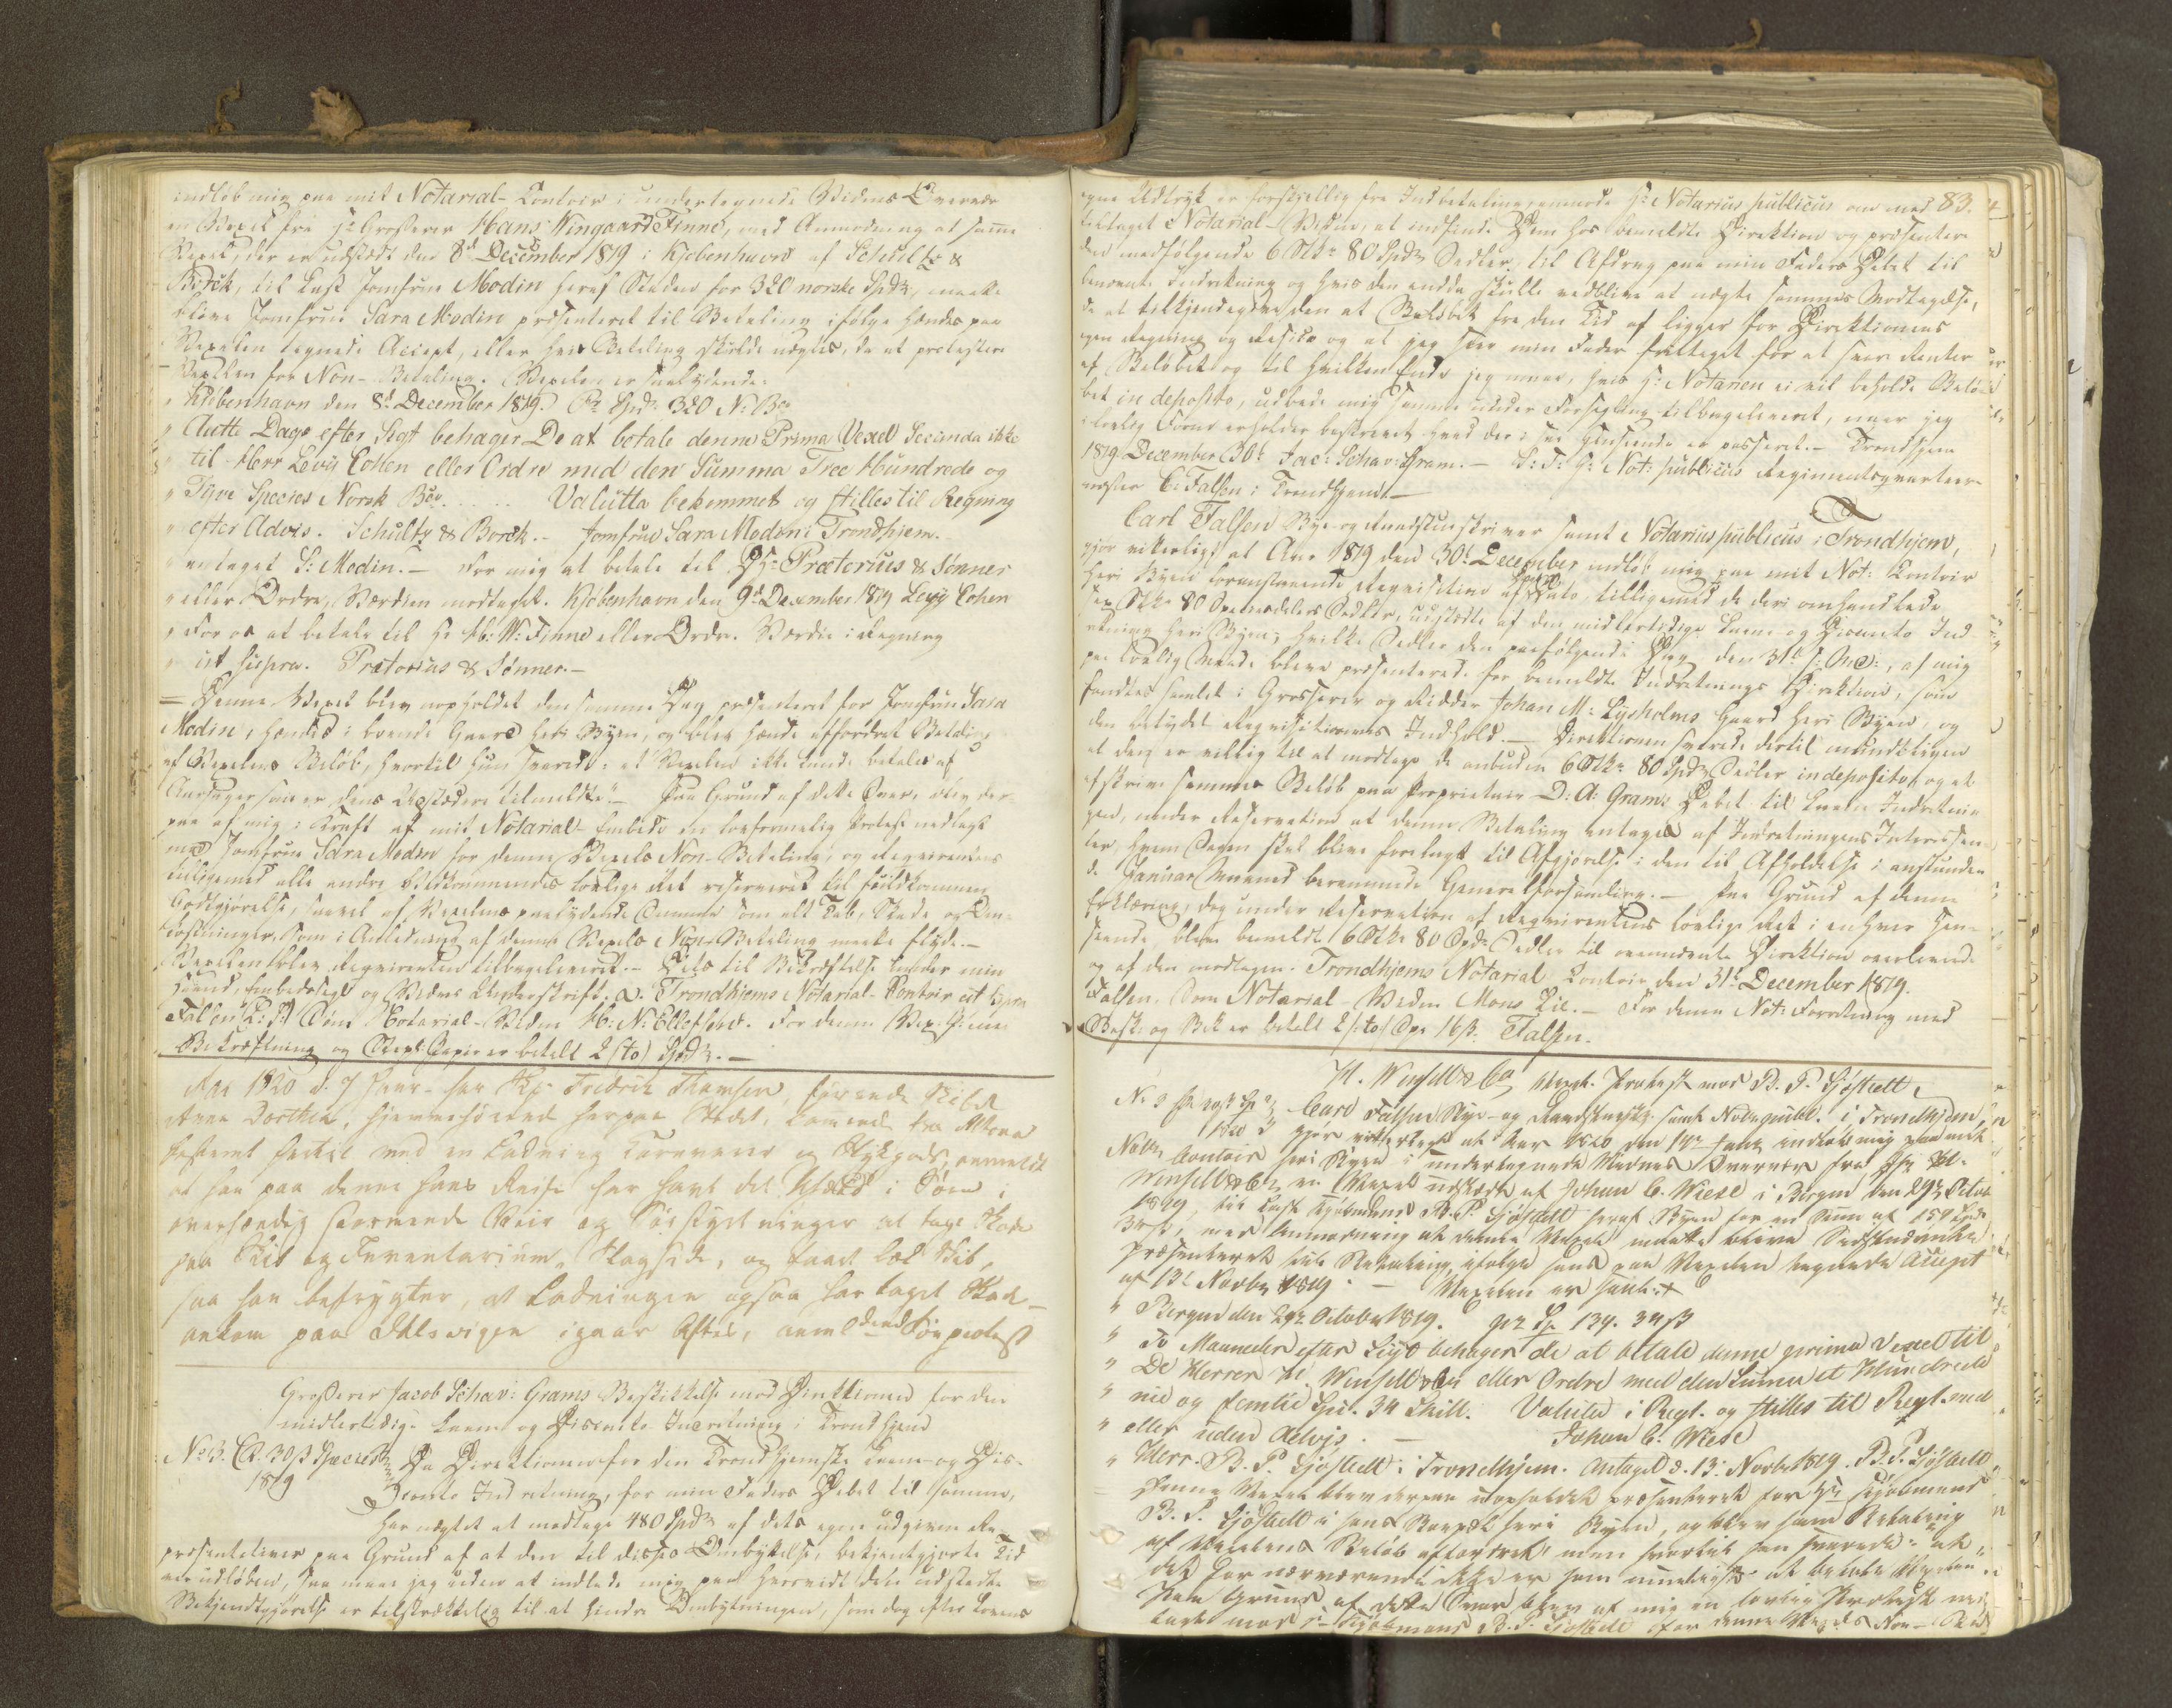 indløb mig paa mit Notarial-Contoir i undertegnede Vidners Overvær
en Vexel fra Hr Grosserer Hans Wingaard Finne, med Anmodning at samme
Vexel, der er udstædt den 8de December 1819 i Kjøbenhavn af Schultz &
Borck, til Last Jomfrue Modin heraf Staden for 320 norske Spdr, maatte
blive Jomfrue Sara Modin præsenteret til Betaling ifølge hendes paa
Vexelen tegnede Accept, eller hvis Betaling skulde nægtes, da at protestere
Vexelen for Non-Betaling. Vexelen er saalydende:
" Kiöbenhavn den 8de December 1819. Pr Spdr 320 N: Bco
" Aatte Dage efter Sigt behager De at betale denne Prima Vexel Secunda ikke
" til Herr Levÿ Cohen eller Ordre med den Summa Tree Hundrede og
" Tÿve Species Norsk Bco. . . . . . Valutta bekommet og stilles til Regning
" efter Advis. Schultz & Borck. - Jomfrue Sara Modin i Trondhjem.
" antaget S: Modin. - For mig at betale til Hr Prætorius & Sønner
" eller Ordre, Værdien modtaget. Kjøbenhavn den 9de December 1819 Levÿ Cohen
" For os at betale til Hr H: W: Finne eller Ordre. Værdie i Regning
" ut supra. Prætorius & Sønner. -
= Denne Vexel blev uopholdet den samme Dag præsenteret for Jomfrue Sara
Modin, hendes i boende Gaard her i Byen, og blev hende affordret Betaling
af Vexelens Beløb, hvortil hun svarede: at Vexelen ikke kunde betales af
Aarsager som er dens Udstædere tilmeldte". - Paa Grund af dette Svar, blev der-
paa af mig i Kraft af mit Notarial-Embede en lovformelig Protest nedlagt
mod Jomfrue Sara Modin for denne Vexels Non-Betaling, og Requirentens
tilligemed alle andre Vedkommendes lovlige Ret reserveret til fuldkommen
Godtgjørelse, saavel af Vexelens paalydende Summa som alt Tab, Skade og Om-
kostninger, som i Anledning af denne Vexels Non-Betaling maatte flyde. -
Vexelen blev Requirenten tilbageleveret. - Dets til Bekræftelse under min
Haand, Embedssegl og Vidners Underskrift. D. Trondhjems Notarial-Contoir ut supra
Falsen (L: S:) Som Notarial-Vidne H: N: Ellefsen. For denne Vex:
Bekræftning og Stpl: Papir er betalt 2 (to) Spdr. -
Aar 1820 d. 7 Janr. har Skpr. Fredrik Thomsen, förende Skibet
Anna Dorthea, hjemmehörende her paa Stedet, kommende fra Altona
bestemt hertil med en Ladning Kornvarer og Stykgods, anmeldt
at han paa denne hans Reise har havt det Uheld i Söen i
overhændig stormende Veir og Söestyrtninger at tage Skade
paa Skib og Inventarium, Slagside, og faaet læk Skib,
saa han befrygter, at Ladningen ogsaa har taget Skade -
ankom paa Ihlsvigen igaar Aftes, anmeldende Söe protest
Grosserer Jacob Schav: Grams Beskikkelse mod Direktionen for den
midlertidige Laane og Disconto Indretning i Trondhjem
No 3. CR. 30 ß Species
1819
Da Direktionen for den Trondhjemske Laane- og Dis-
conto Indretning, for min Faders Debet til samme,
har nægtet at modtage 480 Spdr af dets egne udgivne Re-
præsentativer paa Grund af at den til disses Ombyttelse, bekjentgjorte Tid
var udløben, saa maae jeg uden at indlade mig paa hvorvidt den udstædte
Bekjendtgjørelse er tilstrækkelig til at hindre Ombytningen, som dog efter Lovens
83.
egne Udtryk er forskjellig fra Indbetaling, anmode Hr Notarius publicus om med
tiltaget Notarial-Vidne, at indfinde Dem hos bemeldte Direktion og præsentere
den medfølgende 6 Stkr 80 Spdr Sedler, til Afdrag paa min Faders Debet til
benævnte Indretning og hvis den endda skulle vedblive at nægte sammes Modtagelse,
da at tilkjendegive den at Beløbet fra den Tid af ligger for Direktionens
egen Regning og Risico og at jeg seer min Fader fritaget for at svare Renter
af Beløbet og til hvilken Ende jeg maae, hvis Hr: Notarien ei vil beholde Beløb-
bet in deposito, udbede mig samme under Forsegling tilbageleveret, naar jeg
i lovlig Form erholder beskrevet hvad der i saa Henseende er passeret. - Trondhjem
1819 December 30te Jac: Schav: Gram. - S: T: Hr: Not: publicus Regimentsqvarteer-
mester C: Falsen i Trondhjem. -
Carl Falsen Bye- og Raadstueskriver samt Notarius publicus i Trondhjem,
gjør vitterligt at Aar 1819 den 30te December indløb mig paa mit Not: Contoir
her i Byen foranstaaende Requisition af Dato, tilligemed de deri omhandlede
sex Stkr 80 Speciedalers Sedler, udstædte af den midlertidige Laane og Disconto Ind-
retning her i Byen; hvilke Sedler den paafølgende Dag den 31te s: Md:, af mig
paa lovlig Maade bleve præsenterede for bemeldte Indretnings Direktion, som
fandtes samlet i Grosserer og Ridder Johan M: Lysholms Gaard her i Byen, og
den betydet Requisitionens Indhold. - Direktionen svarede dertil mundtligen
at den er villig til at modtage de anbudne 6 Stkr 80 Spdr Sedler in deposito, og at
afskrive sammes Beløb paa Proprietair D: A: Grams Debet til Laane Indretnin-
gen, under Reservation at denne Betaling antages af Indretningens Interessen-
ter, hvem Sagen skal blive forelagt til Afgjørelse i den til Afholdelse i anstunden-
de Januar Maaned berammede Generalforsamling. - Paa Grund af denne
Erklæring, dog under Reservation af Requirentens lovlige Ret i enhver Hen-
seende bleve bemeldte 6 Stkr 80 Spdr Sedler til ovennævnte Direktion overleverede
og af den modtagen. Trondhjems Notarial Contoir den 31te December 1819.
Falsen. Som Notarial-Vidne Mons Lie. - For denne Not: Forretning med
Besk: og Bek er betalt 2 (to) Spr 16 ß. Falsen.
H. Wensell & Co Vexel-Protest mod B. P. Sjöstedt
No 3
1820
Carl Falsen Bye- og Raadstueskr: samt Not. publ. i Trondhjem,
gjör vitterligt at Aar 1820 den 14de Janr. indlöb mig paa mit
Notr. Contoir her i Byen i undertegnede Vidners Overvær fra Hr H.
Wensell & Co en Vexel udstædt af Johan C. Wiese i Bergen den 29de Octob.
1819, til Last Kjöbmand B. P. Sjöstedt heraf Byen for en Sum af 159 Spdr
34 ß, med Anmodning at denne Vexel maatte blive
præsenteret til Betaling, ifølge hans paa Vexelen tegnede Accept
af 13de Novbr 1819. - Vexelen er saal:
" Bergen den 29de October 1819. pr Sp 159. 34 ß
" To Maaneder efter Sigt behager de at betale denne prima Vexel til
" De Herrer H. Wensell & Co eller Ordre med den Summa et Hundrede
" nie og femtie Spc. 34 Skill. Valuta i Regl. og stilles til Regl. med
" eller uden Advis. - Johan C. Wiese
" Herr. B. P. Sjöstedt i Trondhjem. Antaget d. 13. Novbr 1819. B. P. Sjöstedt
= Denne Vexel blev derpaa uopholdet præsenteret for Hr Kjöbmand
B. P. Sjöstedt i hans Bopæl her i Byen, og blev ham Betaling
af Vexelens Belöb affordret, men hvortil han svarede: "at
det for nærværende ikke er ham mueligt at betale Vexelen"
Paa Grund af dette Svar blev af mig en lovlig Protest ned-
lagt mod Hr Kjöbmand B. P. Sjöstedt for denne Vexels Non-